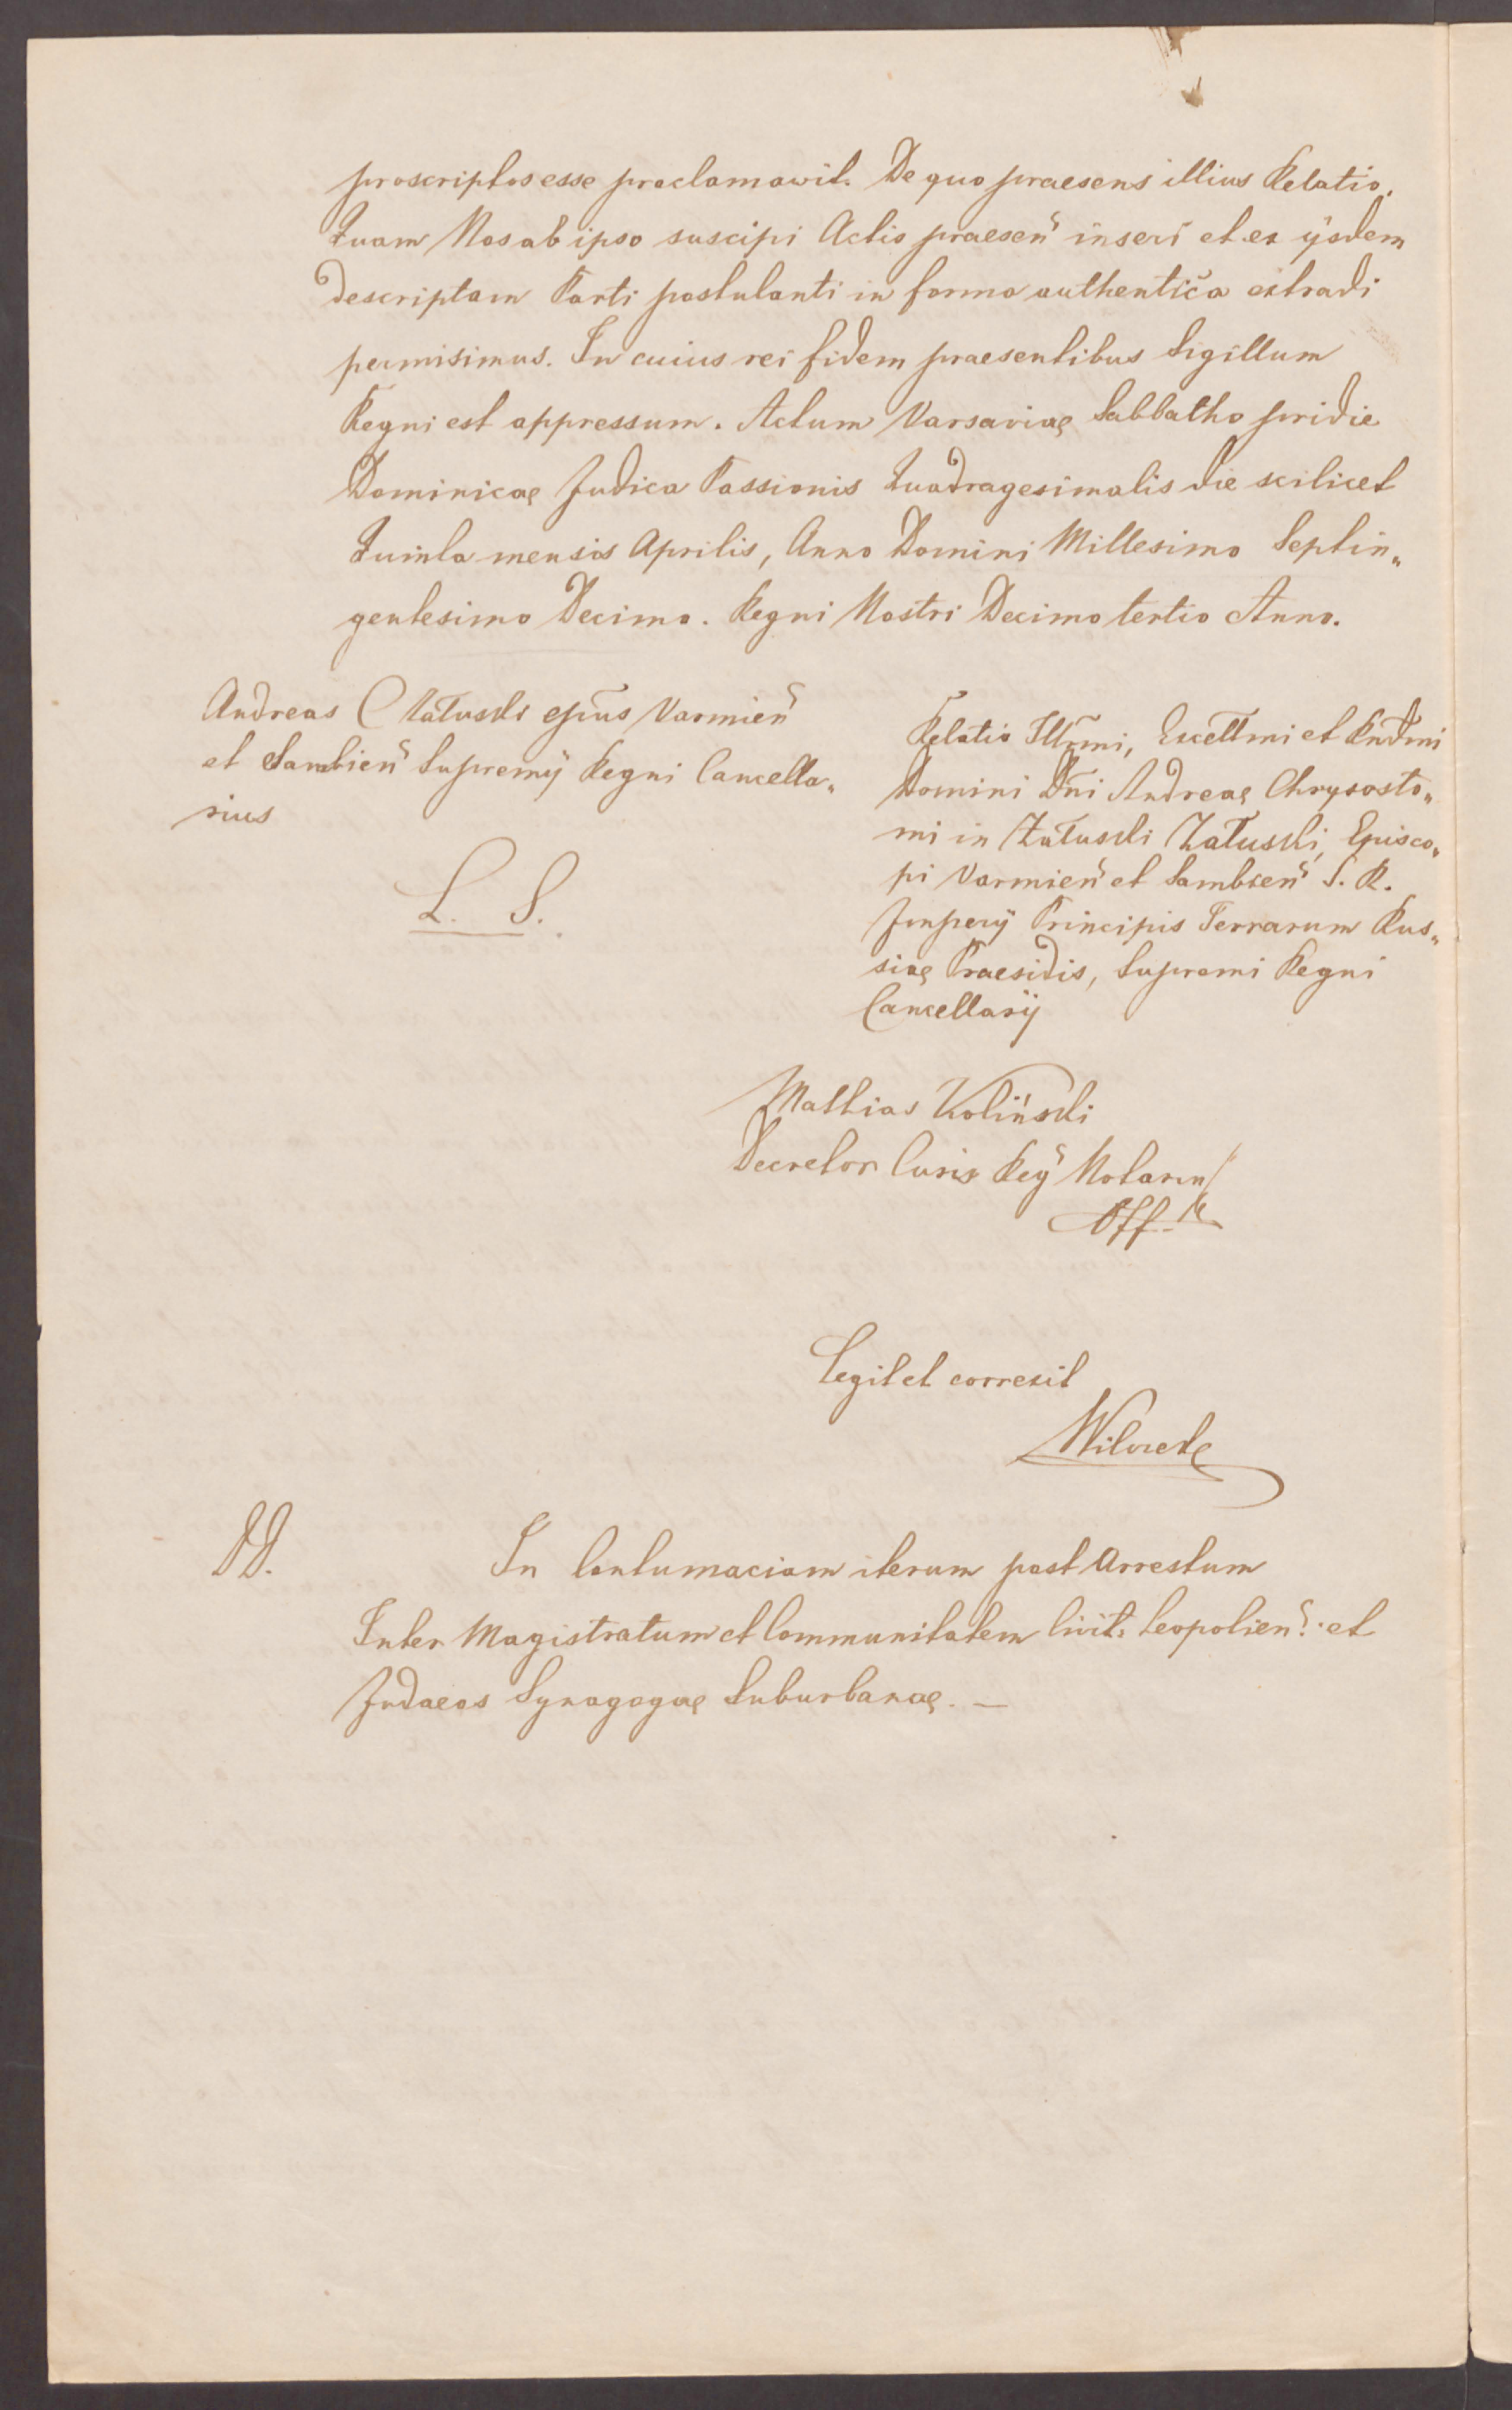 proscriptos esse proclamavit. De quo praesens illius Relatio.
Quam Nos ab ipso suscipi Actis praesen̄ inseri et ex ijsdem
descriptam Parti postulanti in forma authentica extradi
permisimus. In cuius rei fidem praesentibus Sigillum
Regni est appressum. Actum Varsaviae Sabbatho pridie
Dominicae Judica Passionis Quadragesimalis die scilicet
Quinta mensis Aprilis, Anno Domini Millesimo Septin„
gentesimo Decimo. Regni Nostri Decimo tertio Anno.
Andreas C Załuski epūs Varmien̄
et Sambien̄ Supremÿ Regni Cancella„
rius
L. S.
Relatio Illr̄mi, Excellmi et Rndmi
Domini Dn̄i Andreae Chrysosto„
mi in Załuski Załuski, Episco„
pi Varmien̄ et Sambien̄ S. R.
Imperÿ Principis Terrarum Rus„
siae Praesidis, Supremi Regni
Cancellarÿ
Mathias Koliński
Decretor Curis Regÿ Notariu
Legit et correxit
DD.
In Contumaciam iterum post Arrestum
Inter Magistratum et Communitatem Civit: Leopolien̄: et
Judaeos Synagogae Suburbanae. —